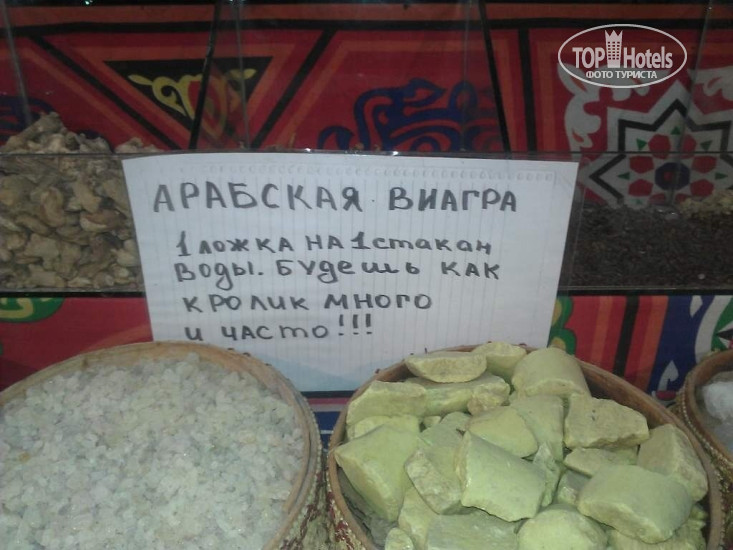 TOP Hotels
ФОТО ТУРИСТА
АРАБСКАЯ ВИАГРА
1 ЛОЖКА НА 1 СТАКАН
ВОДЫ. БУДЕШЬ КАК
КРОЛИК МНОГО
И ЧАСТО!!!